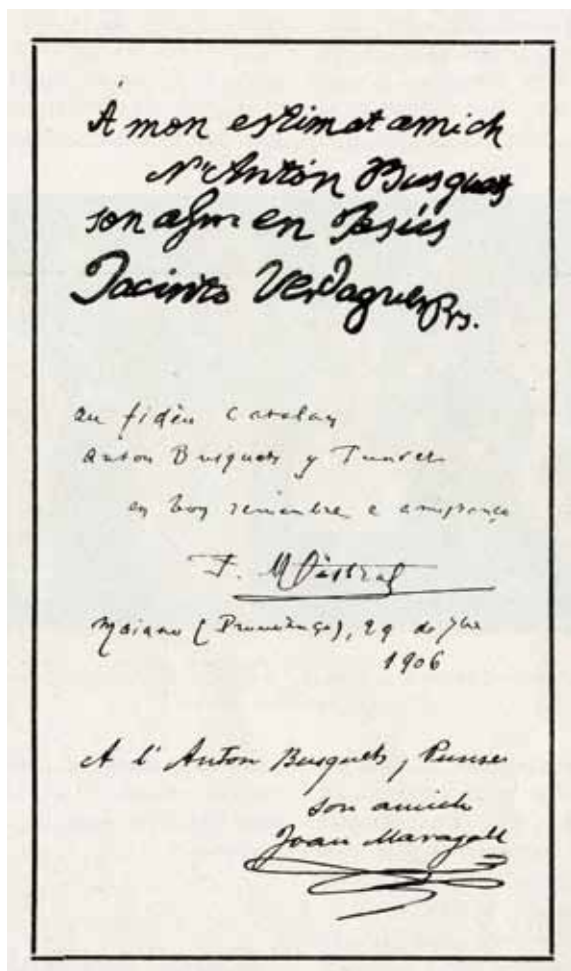 Á mon estimat amich
N'Antón Busquets
son afm en Jesús
Jacinto Verdaguer Pre.
au fidèu Catalan
Anton Busquets y Punset
en bon remembre e amistanço
F. Mistral
Maiano (Prouvènço), 29 de 7bre
1906
A l'Anton Busquets y Punset
son amich
Joan Maragall